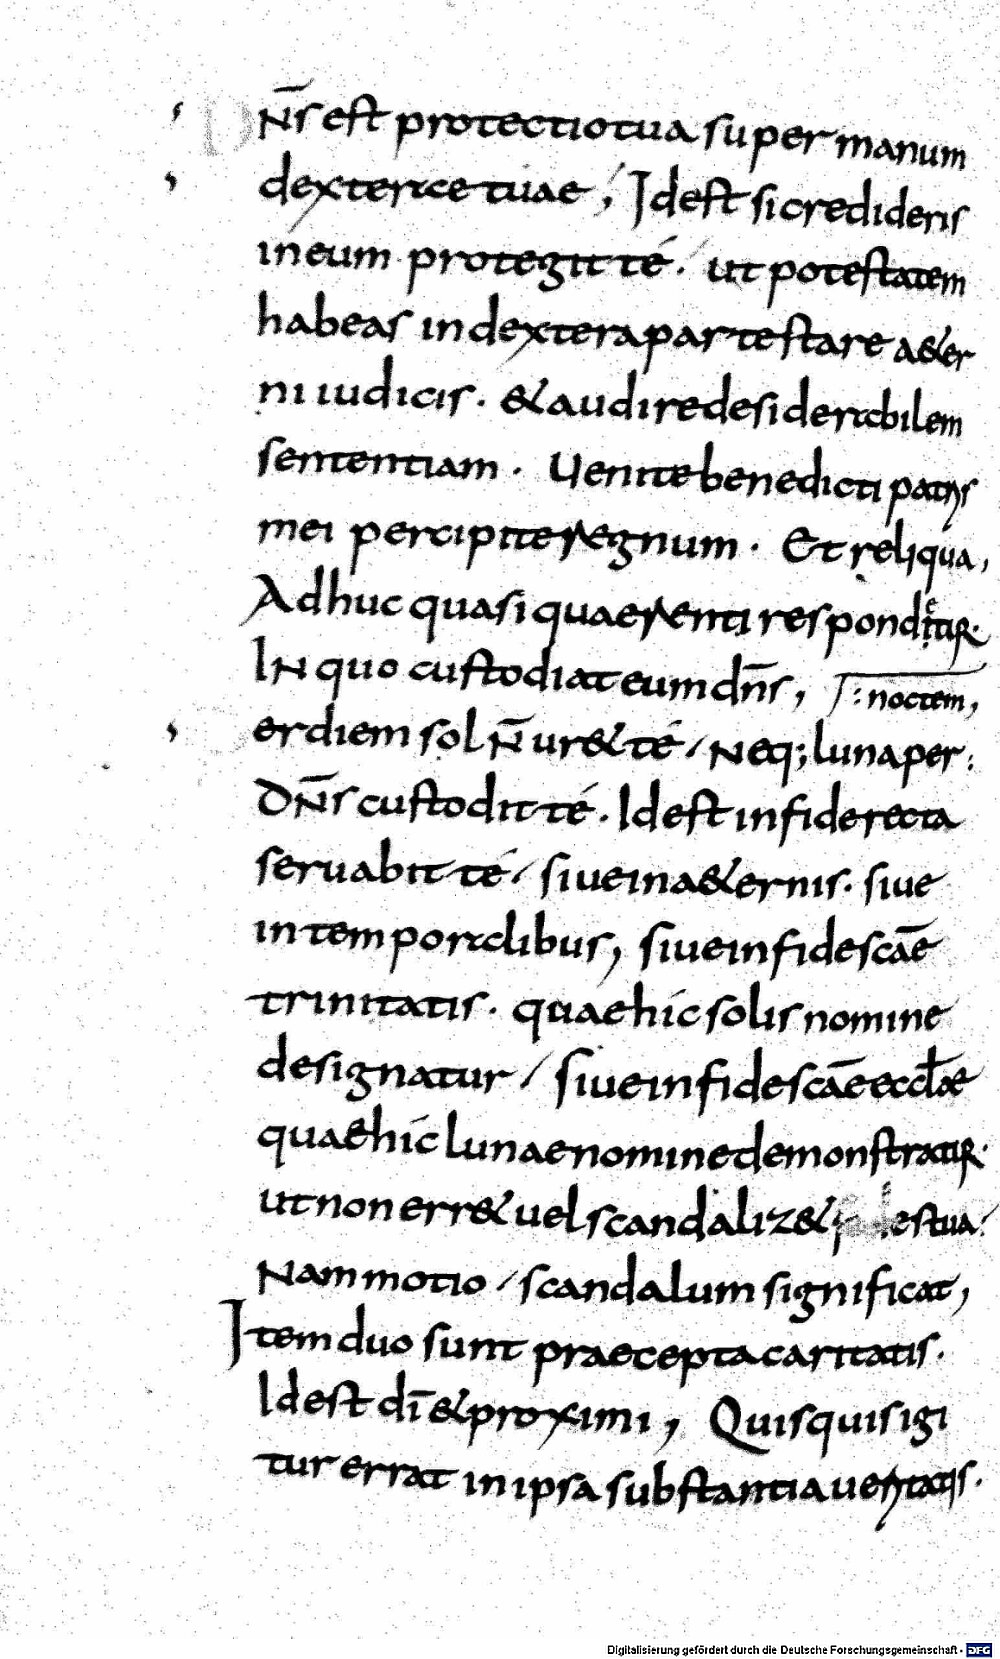 DN̅S est protectio tua super manum
dexterae tuae ; Idest si credideris
in eum protegit té . ut potestatem
habeas in dextera parte stare a&er
ni iudicis . & audire desiderabilem
sententiam . Uenite benedicti patris
mei percipite regnum . Et reliqua ,
Adhuc quasi quaerenti responditur .
IN quo custodiat eum dn̅s ,
: noctem ,
er diem sol N̅ ur& té / Neq; luna per :
DN̅S custodit té . Idest in fide recta
seruabit té / siue in a&ernis . siue
in temporalibus , siue in fide sc̅ae
trinitatis . quae híc solis nomine
designatur / siue in fide sc̅ae eccl̅ae
quae híc lunae nomine demonstratur .
ut non err& uel scandaliz& estua /
Nam motio / scandalum significat ,
Item duo sunt praecepta caritatis .
Idest di̅ & proximi , Quisquis igi
tur errat in ipsa substantia ueritatis .
Digitalisierung gefördert durch die Deutsche Forschungsgemeinschaft - DFG